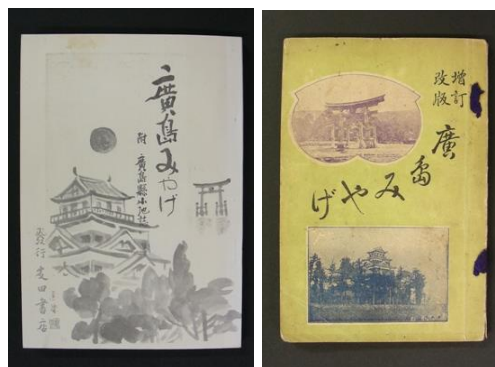 廣島みやげ
附 廣島縣小地誌
發行 友田書店
増訂
改版
廣島みやげ